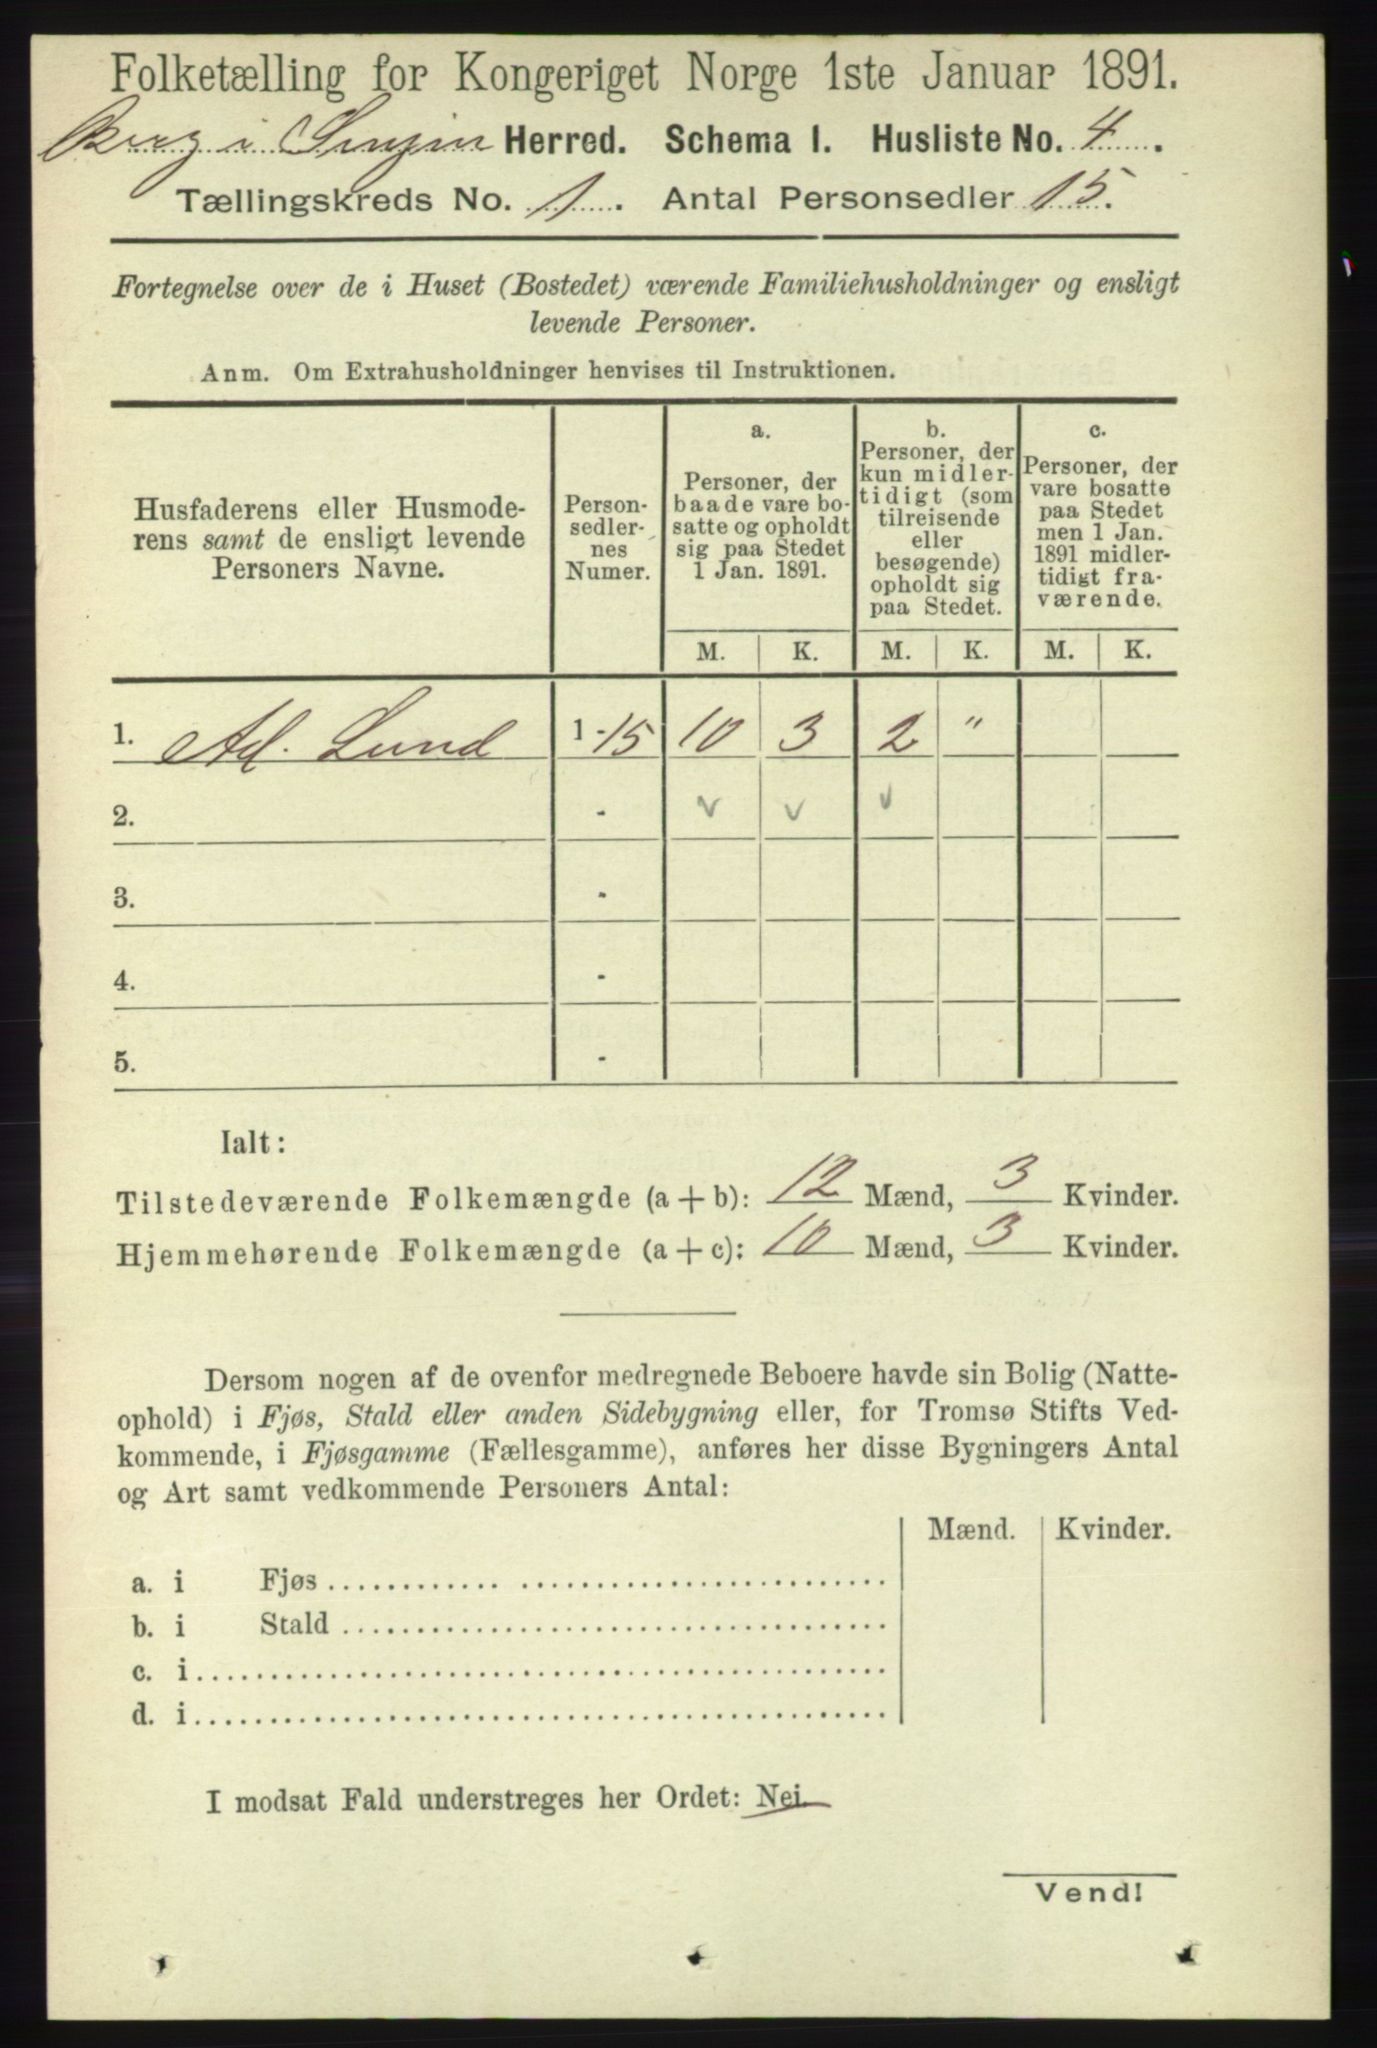 Folketælling for Kongeriget Norge 1ste Januar 1891.
Berg i Senjen Herred. Schema I. Husliste No. 4.
Tællingskreds No. 1. Antal Personsedler 15.
Fortegnelse over de i Huset (Bostedet) værende Familiehusholdninger og ensligt
levende Personer.
Anm. Om Extrahusholdninger henvises til Instruktionen.
Husfaderens eller Husmode-
rens samt de ensligt levende
Personers Navne.
Person-
sedler-
nes
Numer.
a.
Personer, der
baade vare bo-
satte og opholdt
sig paa Stedet
1 Jan. 1891.
b.
Personer, der
kun midler-
tidigt (som
tilreisende
eller
besøgende)
opholdt sig
paa Stedet.
c.
Personer, der
vare bosatte
paa Stedet
men 1 Jan.
1891 midler-
tidigt fra-
værende.
M. K. M. K. M. K.
1. Ad. Lund 1-15 10 3 2 "
2. - v v v
3. -
4. -
5. -
Ialt:
Tilstedeværende Folkemængde (a + b): 12 Mænd, 3 Kvinder.
Hjemmehørende Folkemængde (a + c): 10 Mænd, 3 Kvinder.
Dersom nogen af de ovenfor medregnede Beboere havde sin Bolig (Natte-
ophold) i Fjøs, Stald eller anden Sidebygning eller, for Tromsø Stifts Ved-
kommende, i Fjøsgamme (Fællesgamme), anføres her disse Bygningers Antal
og Art samt vedkommende Personers Antal:
Mænd. Kvinder.
a. i Fjøs
b. i Stald
c. i
d. i
I modsat Fald understreges her Ordet: Nei.
Vend!